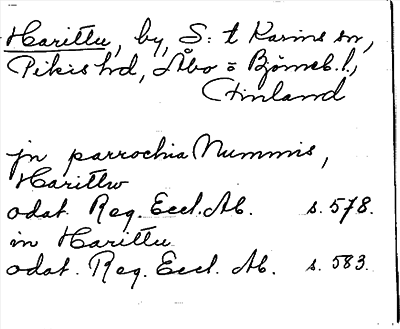 Harittu, by, S:t Karins sn,
Pikis hd, Åbo = Björneb. l.,
Finland
jn parrochia Nummis,
Harittw
odat. Reg. Eccl. Ab. s. 578.
in Harittu
odat. Reg. Eccl. Ab. s. 583.